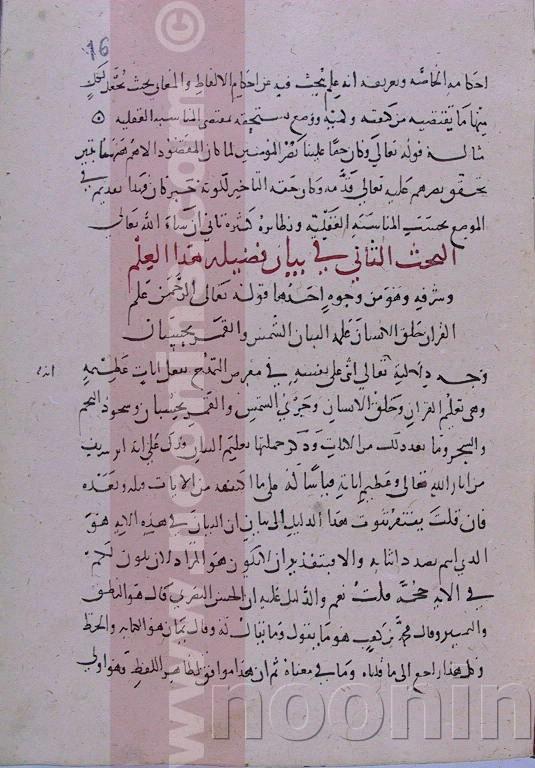 16
احكامه الخاصة وتعريفه انه علم يبحث فيه عن احكام الالفاظ والمعاني بحيث يجعل لكل
منها ما يقتضيه من كيفية وكمية ووضع يستحقه بمقتضى المناسبة العقلية
مثاله قوله تعالى وكان حقا علينا نصر المؤمنين لما كان المقصود الاهم
تحقق نصرهم عليه تعالى قدمه وكان حقه التاخير لكونه خبر كان فهذا تقديم في
الموضع بحسب المناسبة العقلية ونظايره كثيرة تاتي ان شاء الله تعالى
البحث الثاني في بيان فضيلة هذا العلم
وشرفه وهو من وجوه احدها قوله تعالى الرحمن علم
القران خلق الانسان علمه البيان الشمس والقمر بحسبان
وجه دلالته انه تعالى اثنى على نفسه في معرض التمدح بفعل ايات عظيمة
وهي تعليم القران وخلق الانسان وجري الشمس والقمر بحسبان وسجود النجم
والشجر وما بعد ذلك من الايات وذكر من جملتها تعليم البيان فدل على انه اثر شريف
من اثار الله تعالى وعظيم اياته قياسا له على ما اكتنفه من الايات قبله وبعده
فان قلت يفتقر ثبوت هذا الدليل الى بيان ان البيان في هذه الاية هو
الذي انتم بصدد اثباته والا فبتقدير ان لا يكون هو المراد لا يكون لكم
في الاية حجة قلت نعم والدليل عليه ان الحسن البصري قال هو النطق
والتمييز وقال محمد بن كعب هو ما يقول وما يقال له وقال يمان هو الكتابة والخط
وكل هذا راجع الى ما قلناه وما في معناه ثم ان هذا موافق لظاهر اللفظ وهو اولى
www.noonin.com ©
noonin